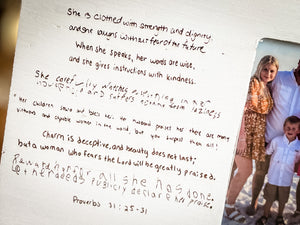 She is clothed with strength and dignity,
and she laughs without fear of the future
When she speaks, her words are wise,
and she gives instructions with kindness.
She carefully watches everything in her
household and suffers nothing from laziness
"Her children stand and bless her. Her husband praises her There are many
virtuous and capable women in the world, but you surpass them all!
Charm is deceptive, and beauty does not last;
but a woman who fears the Lord will be greatly praised.
Reward her for all she has done.
Let her deeds publicly declare her praise.
Proverbs 31:25-31